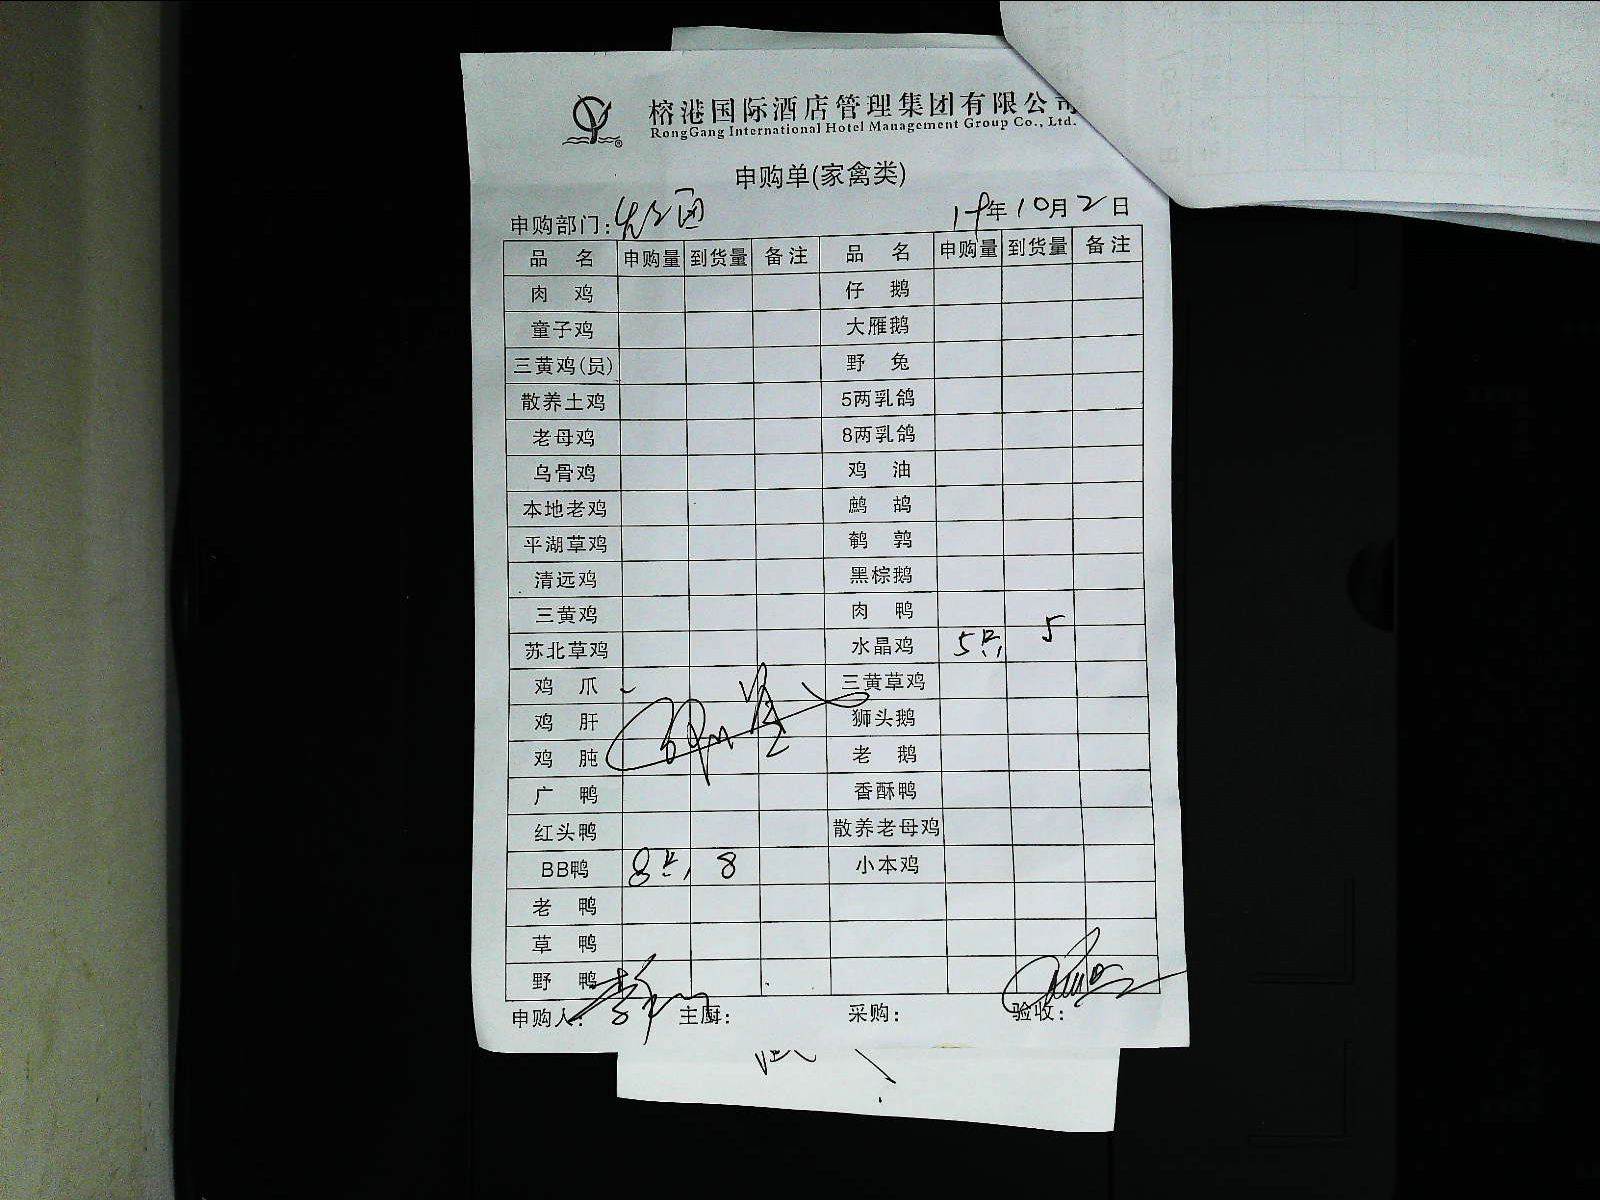 榕港国际酒店管理集团有限公司
RongGang International Hotel Management Group Co., Ltd.
申购单(家禽类)
申购部门: 年10月2日
品 名 申购量 到货量 备注 品 名 申购量 到货量 备注
肉 鸡 仔 鹅
童子鸡 大雁鹅
三黄鸡(员) 野 兔
散养土鸡 5两乳鸽
老母鸡 8两乳鸽
乌骨鸡 鸡 油
本地老鸡 鹧 鸪
平湖草鸡 鹌 鹑
清远鸡 黑棕鹅
三黄鸡 肉 鸭
苏北草鸡 水晶鸡 5只 5
鸡 爪 三黄草鸡
鸡 肝 狮头鹅
鸡 肫 老 鹅
广 鸭 香酥鸭
红头鸭 散养老母鸡
BB鸭 8只 8 小本鸡
老 鸭
草 鸭
野 鸭
申购人: 主厨: 采购: 验收: